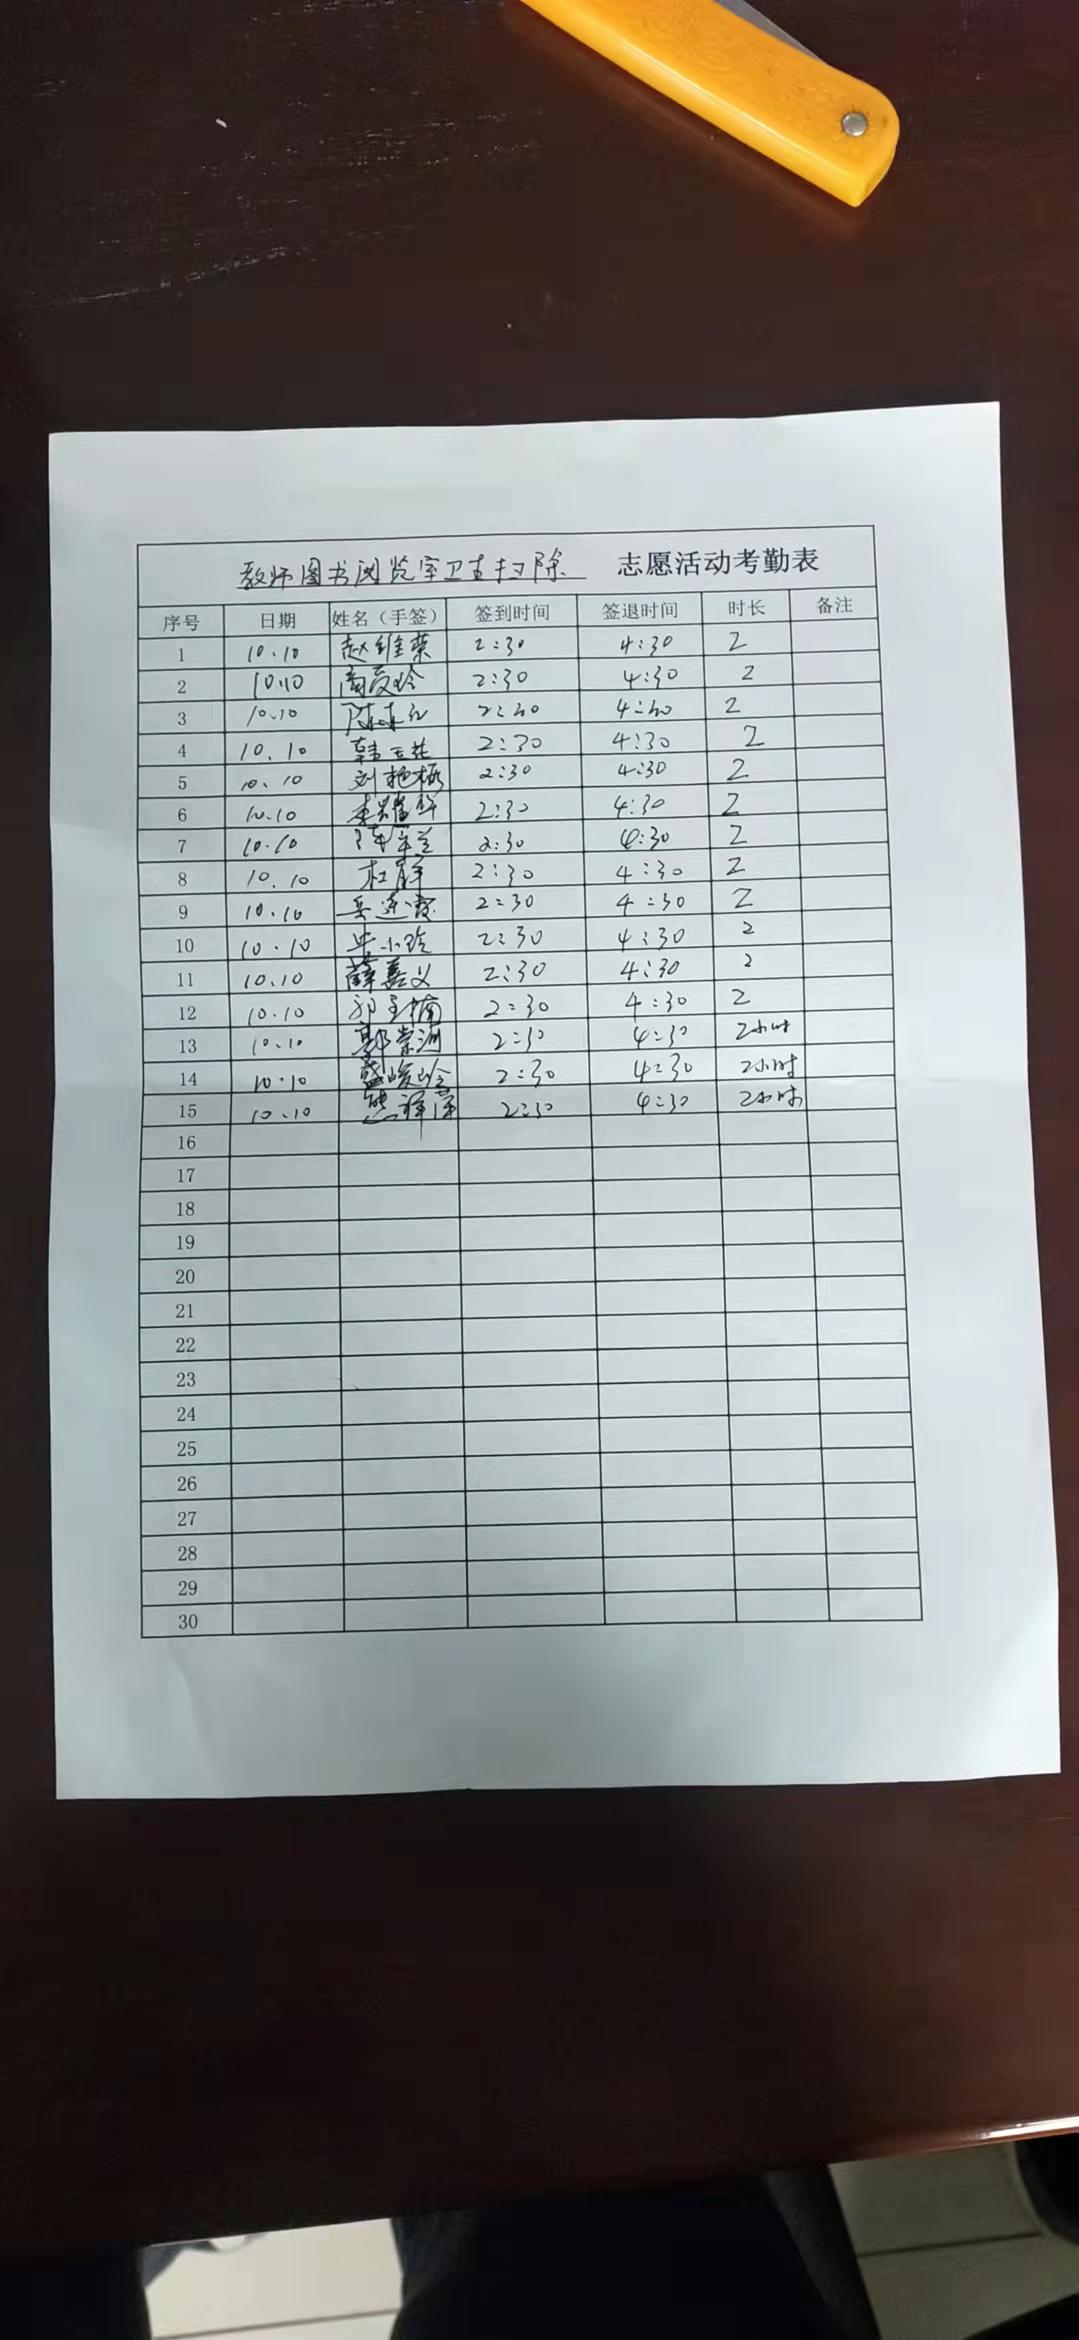 教师图书阅览室卫生扫除 志愿活动考勤表
序号 日期 姓名（手签） 签到时间 签退时间 时长 备注
1 10.10 赵维荣 2:30 4:30 2
2 10.10 2:30 4:30 2
3 10.10 2:30 4:30 2
4 10.10 韩玉花 2:30 4:30 2
5 10.10 刘艳梅 2:30 4:30 2
6 10.10 李耀华 2:30 4:30 2
7 10.10 2:30 4:30 2
8 10.10 杜静 2:30 4:30 2
9 10.10 岳莲霞 2:30 4:30 2
10 10.10 小玲 2:30 4:30 2
11 10.10 薛嘉义 2:30 4:30 2
12 10.10 2:30 4:30 2
13 10.10 郭崇洲 2:30 4:30 2小时
14 10.10 盛峻玲 2:30 4:30 2小时
15 10.10 熊泽 2:30 4:30 2小时
16
17
18
19
20
21
22
23
24
25
26
27
28
29
30